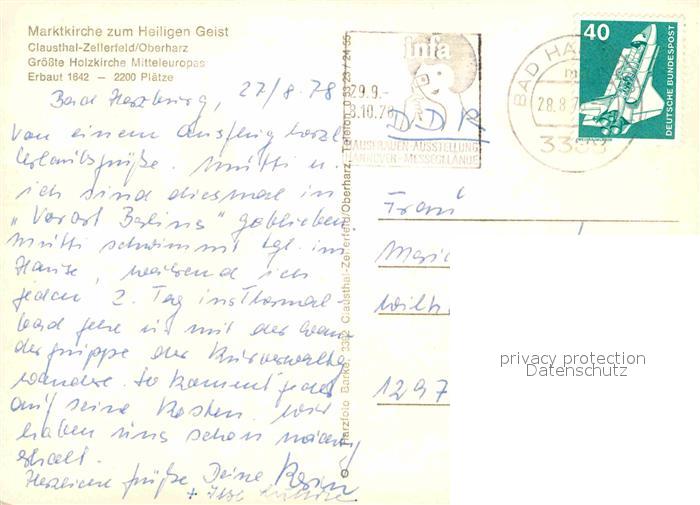 Marktkirche zum Heiligen Geist
Clausthal-Zellerfeld/Oberharz
Größte Holzkirche Mitteleuropas
Erbaut 1642 — 2200 Plätze
Bad Harzburg, 27/8.78
Von einem Ausflug herzl.
Urlaubsgrüße. Mutti u.
ich sind diesmal in
"Vorort Berlins" geblieben.
Mutti schwimmt tgl. im
Hause, während ich
jeden 2. Tag ins Thermal
bad gehe u. mit der Wan
dergruppe der Kurverwaltg.
wandere. So kommt jeder
auf seine Kosten. Wir
haben uns schon
erholt.
Herzliche Grüße Deine Karin
+
© Harzfoto Barke, 3392 Clausthal-Zellerfeld/Oberharz, Telefon 0 53 23 / 24 55
infa
29.9.-
8.10.78
HAUSFRAUEN-AUSSTELLUNG
HANNOVER-MESSEGELÄNDE
DDR
BAD HA
28.8.7
3388
40
DEUTSCHE BUNDESPOST
Frau
Mari
Wilh
1297
privacy protection
Datenschutz